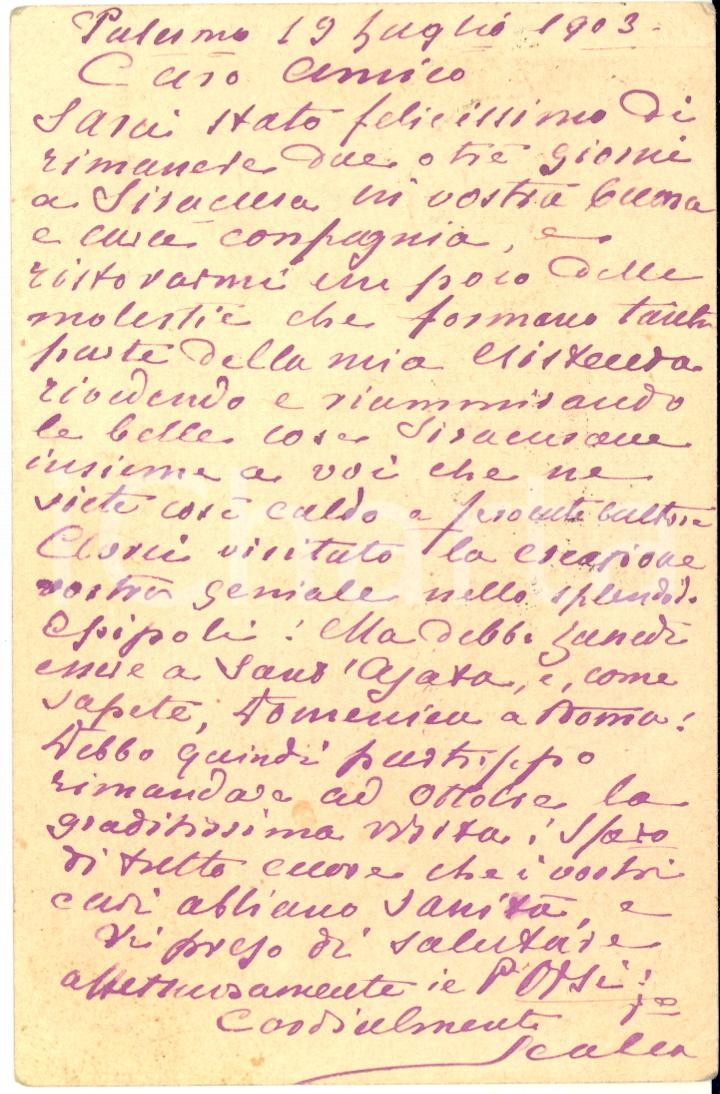 Palermo 19 Luglio 1903.
Caro Amico
Sarei stato felicissimo di
rimanere due o tre giorni
a Siracusa in vostra buona
e cara compagnia, e
ristorarmi un poco delle
molestie che formano tanta
parte della mia esistenza
rivedendo e riammirando
le belle cose Siracusane
insieme a voi che ne
siete così caldo e
visitato la escasione
vostra geniale nello splendido
Epipoli! Ma debbo
essere a Sant'Agata, e, come
sapete, Domenica a Roma!
Debbo quindi purtroppo
rimandare ad Ottobre la
graditissima visita! Spero
di tutto cuore che i vostri
cari abbiano sanità, e
Vi prego di salutare
affettuosamente il P Orsi!
Cordialmente
Scalea
iCharta